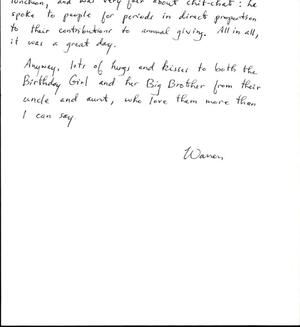 luncheon, and was very fair about chit-chat: he
spoke to people for periods in direct proportion
to their contributions to annual giving. All in all,
it was a great day.
Anyway, lots of hugs and kisses to both the
Birthday Girl and her Big Brother from their
uncle and aunt, who love them more than
I can say.
Warren